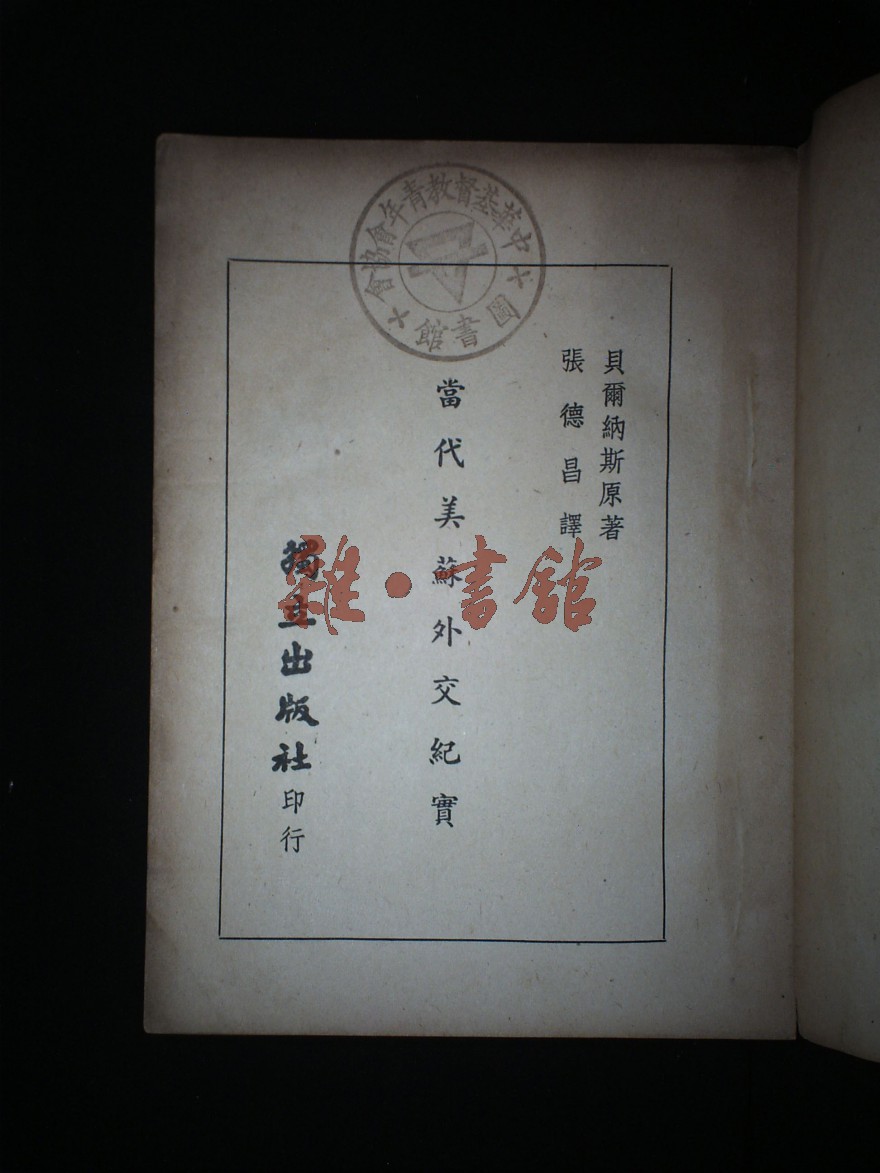 中華基督教青年會協會
圖書館
貝爾納斯原著
張德昌譯
當代美蘇外交紀實
獨立出版社印行
雜·書館